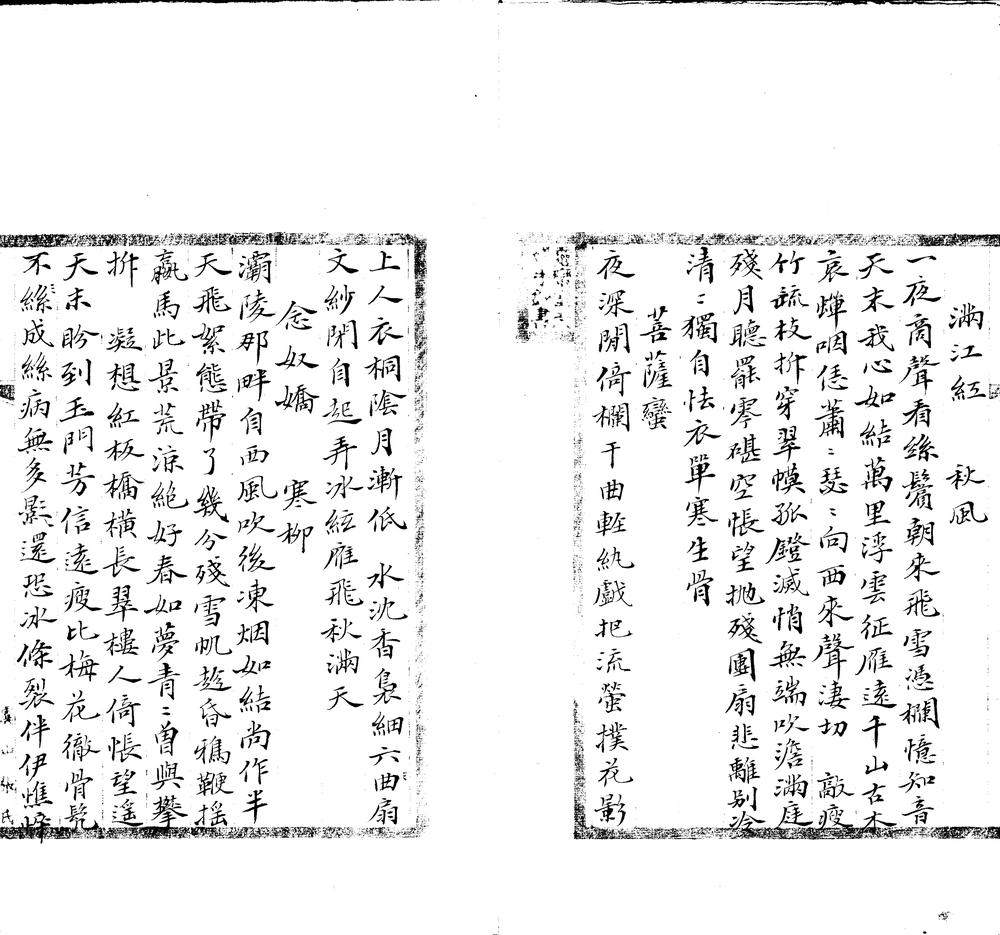 滿江紅　秋風
一夜商聲看絲鬢朝來飛雪憑欄憶知音
天末我心如結萬里浮雲征雁遠千山古木
哀蟬咽恁蕭〻瑟〻向西來聲淒切　敲瘦
竹疏枝拆穿翠幙孤鐙滅悄無端吹澹滿庭
殘月聽罷零碪空悵望拋殘團扇悲離别冷
清〻獨自怯衣單寒生骨
菩薩蠻
夜深閒倚欄干曲輕紈戲把流螢撲花影
上人衣桐陰月漸低　水沈香裊細六曲扇
文紗閉自起弄冰絃雁飛秋滿天
念奴嬌　寒柳
灞陵那畔自西風吹後凍烟如結尚作半
天飛絮態帶了幾分殘雪帆趁昏鴉鞭摇
羸馬此景荒涼絶好春如夢青〻曽與攀
拆　凝想紅板橋橫長翠樓人倚悵望遙
天末盼到玉門芳信遠瘦比梅花徹骨髡
不絲成絲病無多影還恐冰條裂伴伊憔悴